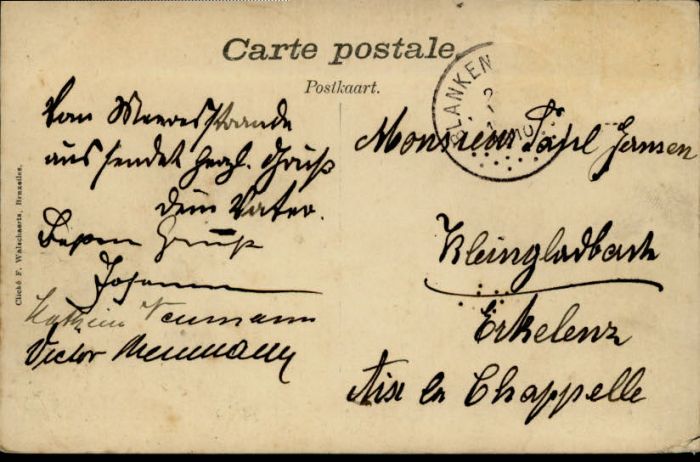 Carte postale.
Postkaart.
BLANKEN
Vom Meeresstrande
aus sendet herzl. Gruß
dein Vater.
Besten Gruß
Johann
Neumann
Victor Neumann
Monsieur Paul Jansen
Kleingladbach
Erkelenz
Aix la Chappelle
Cliché F. Walschaerts, Bruxelles.